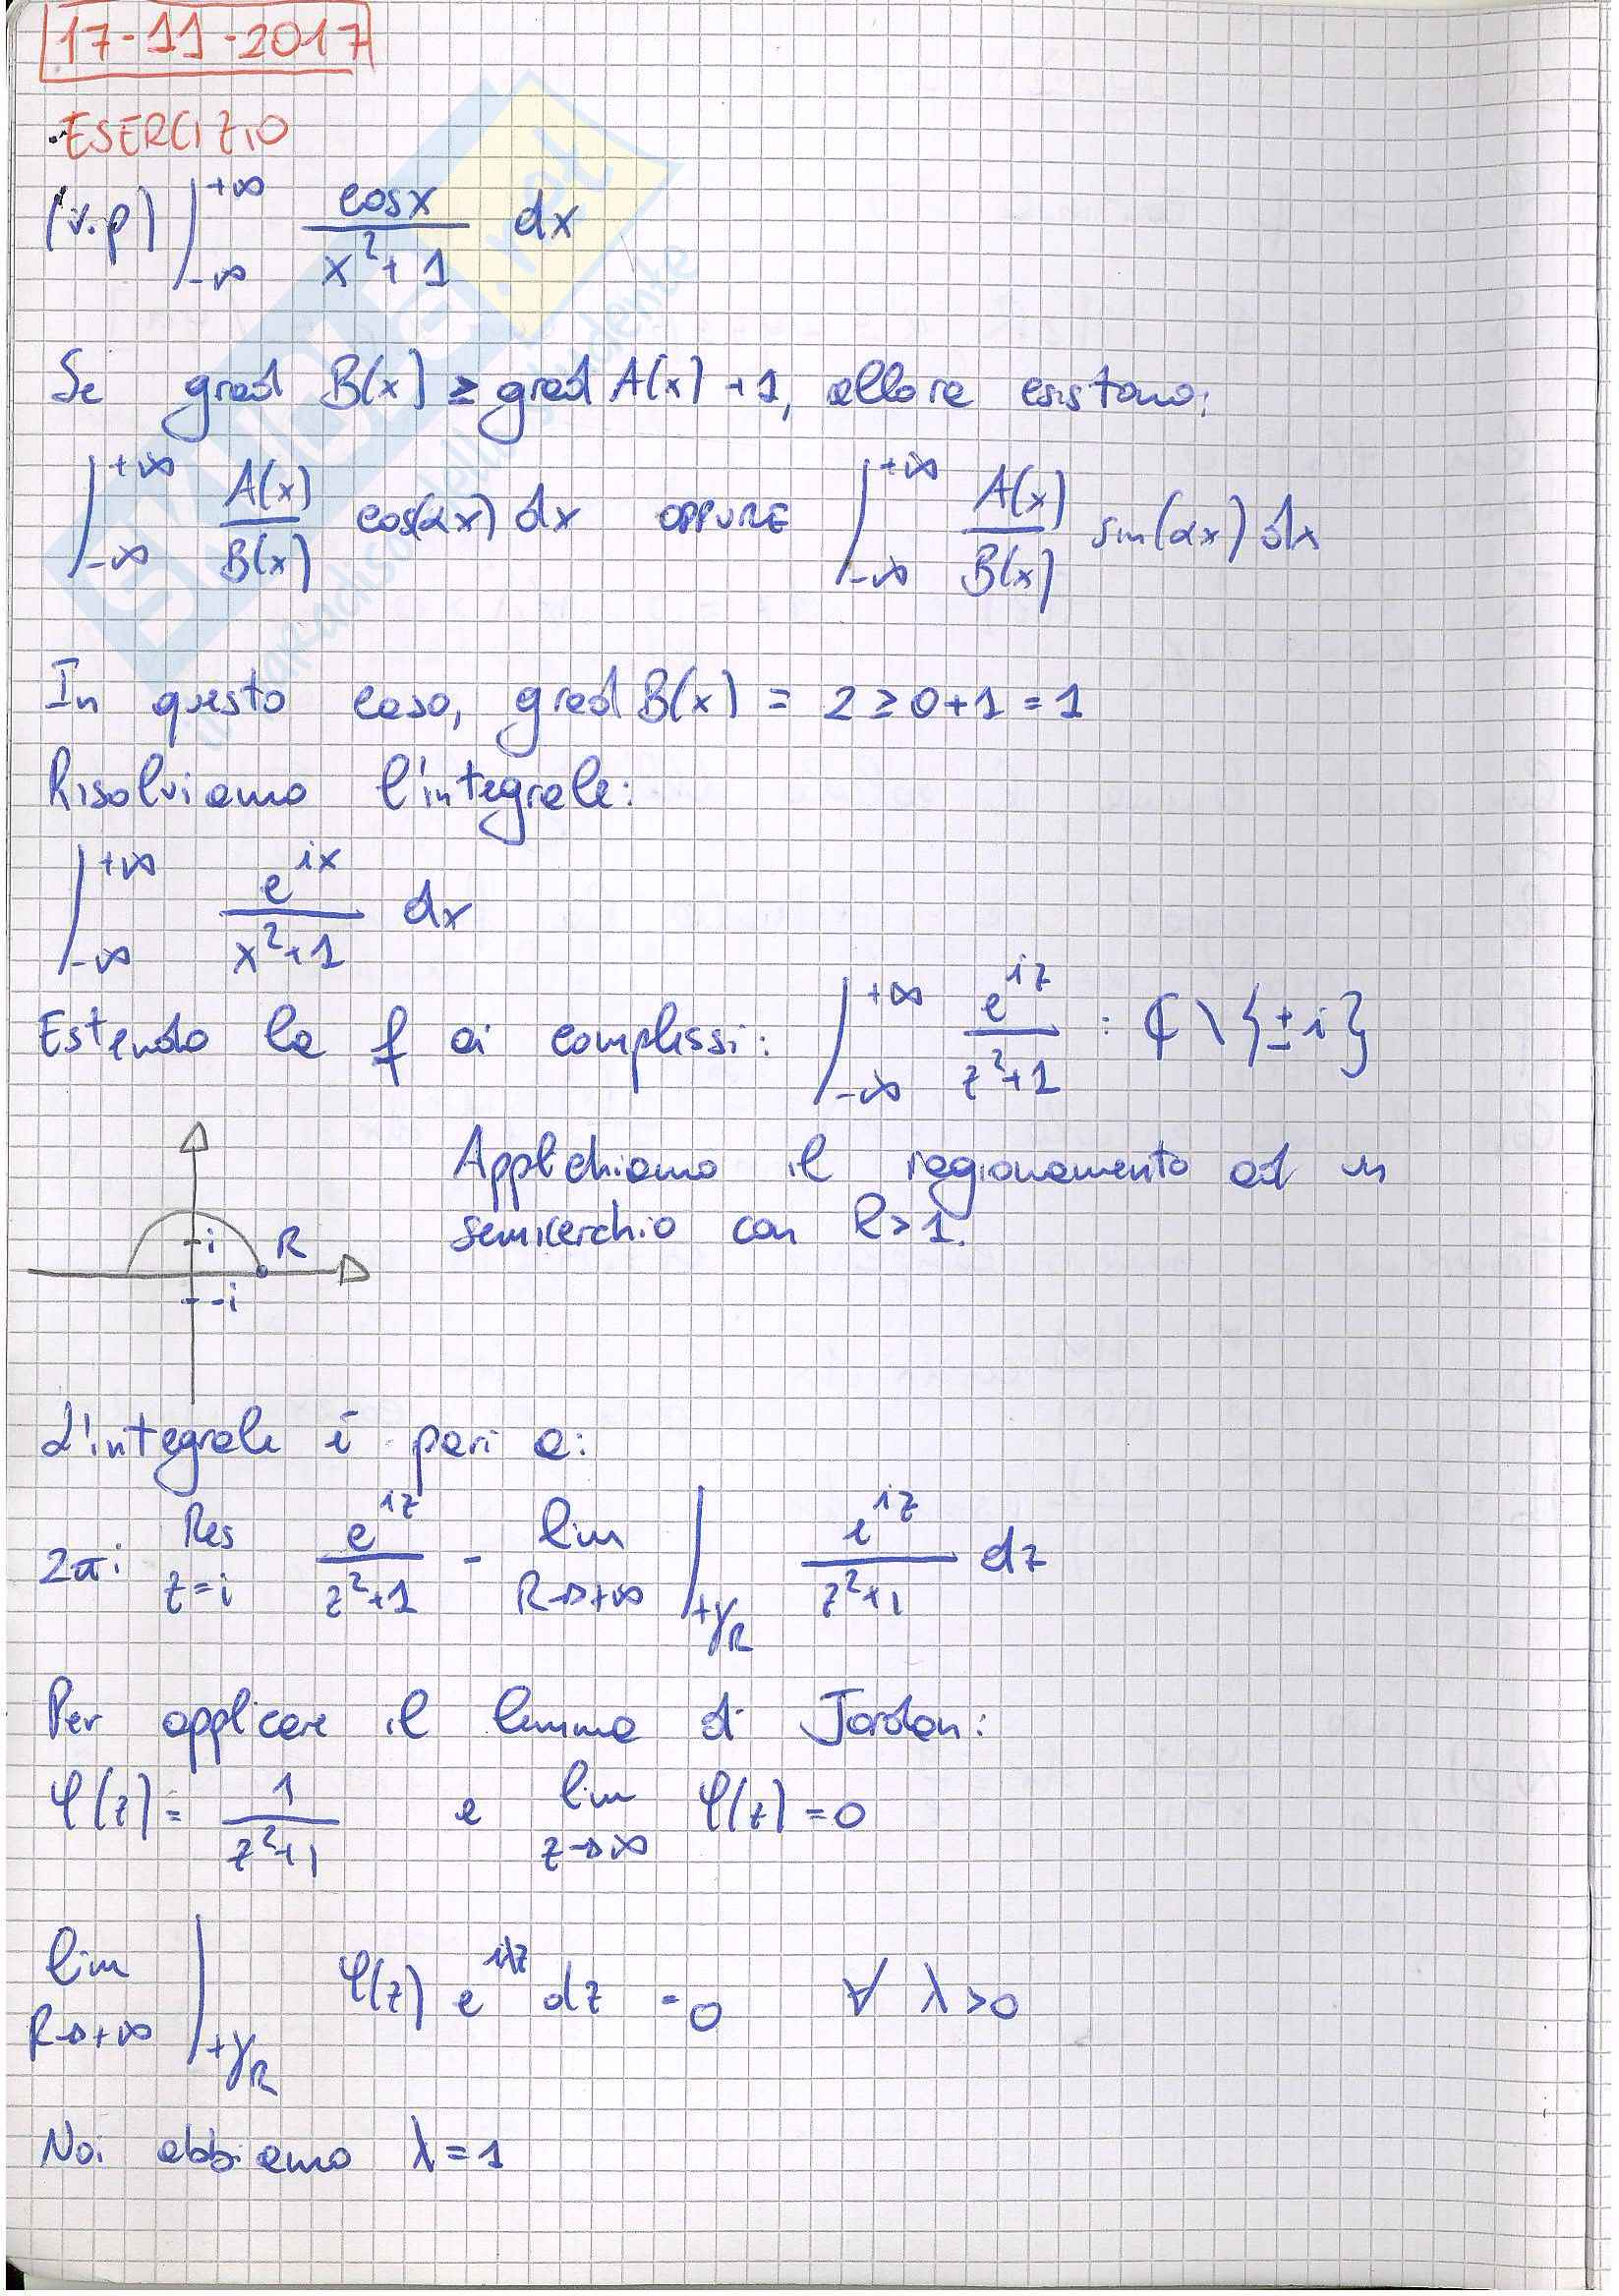 17-11-2017
ESERCIZIO
(v.p) ∫_{-∞}^{+∞} cosx / (x²+1) dx
Se grad B(x) ≥ grad A(x) +1, allora esistono:
∫_{-∞}^{+∞} A(x)/B(x) cos(αx) dx OPPURE ∫_{-∞}^{+∞} A(x)/B(x) sin(αx) dx
In questo caso, grad B(x) = 2 ≥ 0+1 = 1
Risolviamo l'integrale:
∫_{-∞}^{+∞} e^{ix} / (x²+1) dx
Estendo la f ai complessi: ∫_{-∞}^{+∞} e^{iz} / (z²+1) : ℂ \ {±i}
Applichiamo il ragionamento ad un
semicerchio con R>1.
i R
-i
L'integrale è pari a:
2πi Res_{z=i} e^{iz} / (z²+1) - lim_{R→+∞} ∫_{+γ_R} e^{iz} / (z²+1) dz
Per applicare il lemma di Jordan:
φ(z) = 1 / (z²+1) e lim_{z→∞} φ(z) = 0
lim_{R→+∞} ∫_{+γ_R} φ(z) e^{iλz} dz = 0 ∀ λ>0
Noi abbiamo λ=1